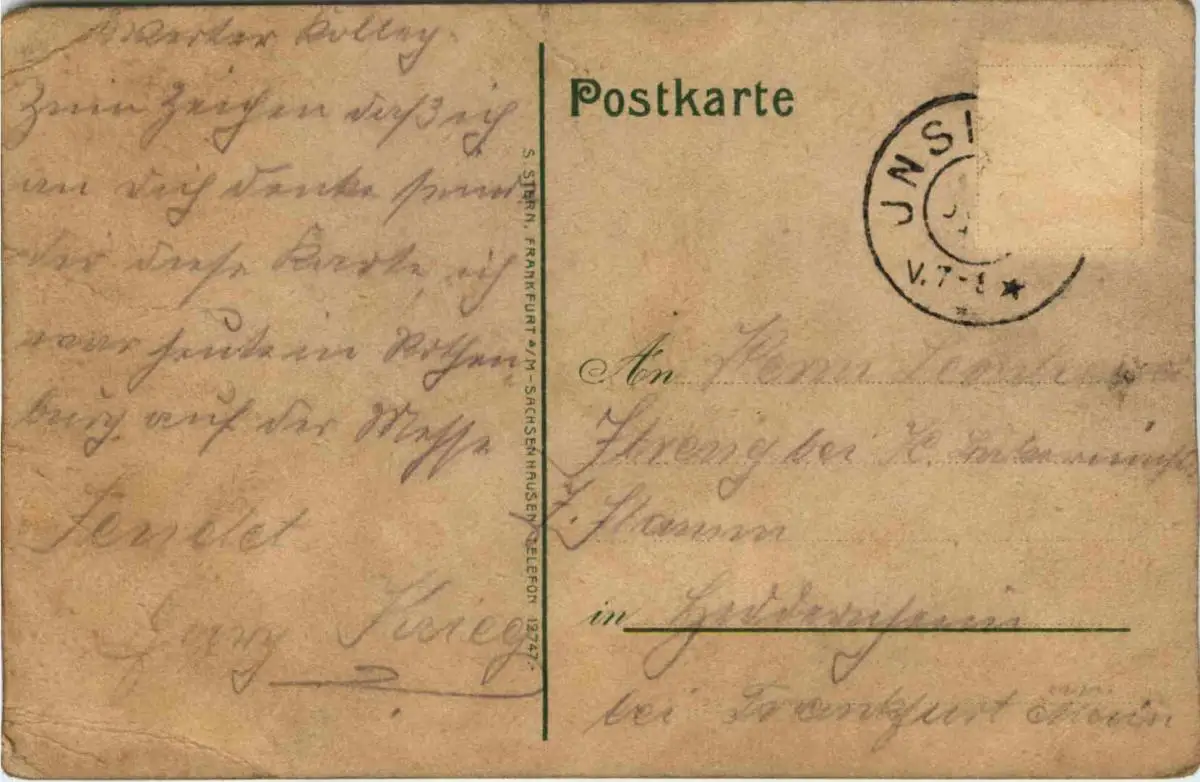 Werter Kolleg.
Zum Zeichen daß ich
an Dich denke
dir diese Karte, ich
war heute in Rothen
burg auf der Messe
Sendet
Georg Krieg
S. STERN, FRANKFURT A/M-SACHSENHAUSEN TELEFON 12747.
Postkarte
JNSI
V.7-8
An Herrn
Streng bei H.
Z. Stamm
in Heddernheim
bei Frankfurt Main